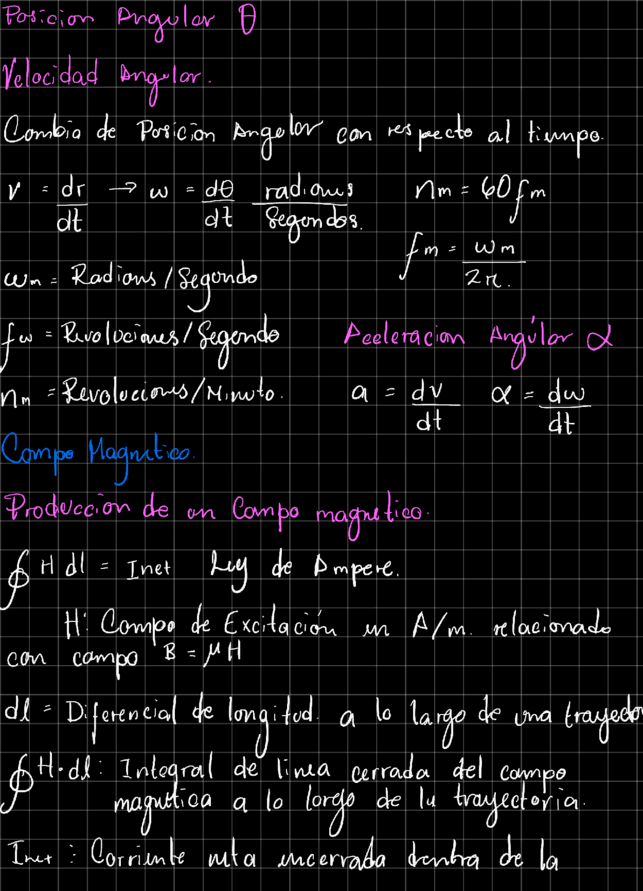 Posicion Angular θ
Velocidad Angular.
Cambia de Posición Angular con respecto al tiempo.
v = dr/dt → w = dθ/dt radianes/Segundos. nm = 60fm
fm = wm/2π.
wm = Radians/Segundo
fw = Revoluciones/Segundo Aceleracion Angúlar α
nm = Revoluciones/Minuto. a = dv/dt α = dw/dt
Campo Magnetico.
Producción de un Campo magnetico.
∮ H dl = Inet Ley de Ampere.
H: Campo de Excitación en A/m. relacionado
con campo B = μH
dl = Diferencial de longitud. a lo largo de una trayecto
∮ H·dl: Integral de linea cerrada del campo
magnetica a lo largo de la trayectoria.
Inet : Corriente neta encerrada dentra de la